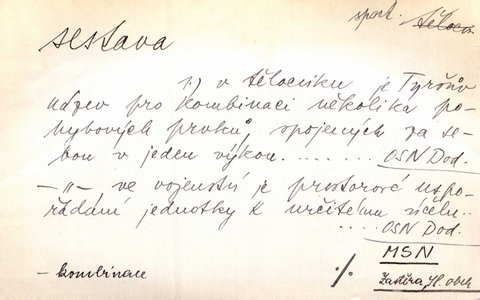 sport. tělocv.
sestava
1.) v tělocviku je Tyršův
název pro kombinaci několika po-
hybových prvků, spojených za se-
bou v jeden výkon. ........ OSN Dod.
—"— ve vojenství je prostorové uspo-
řádání jednotky k určitému účelu..
..... OSN Dod.
MSN
- kombinace ./.